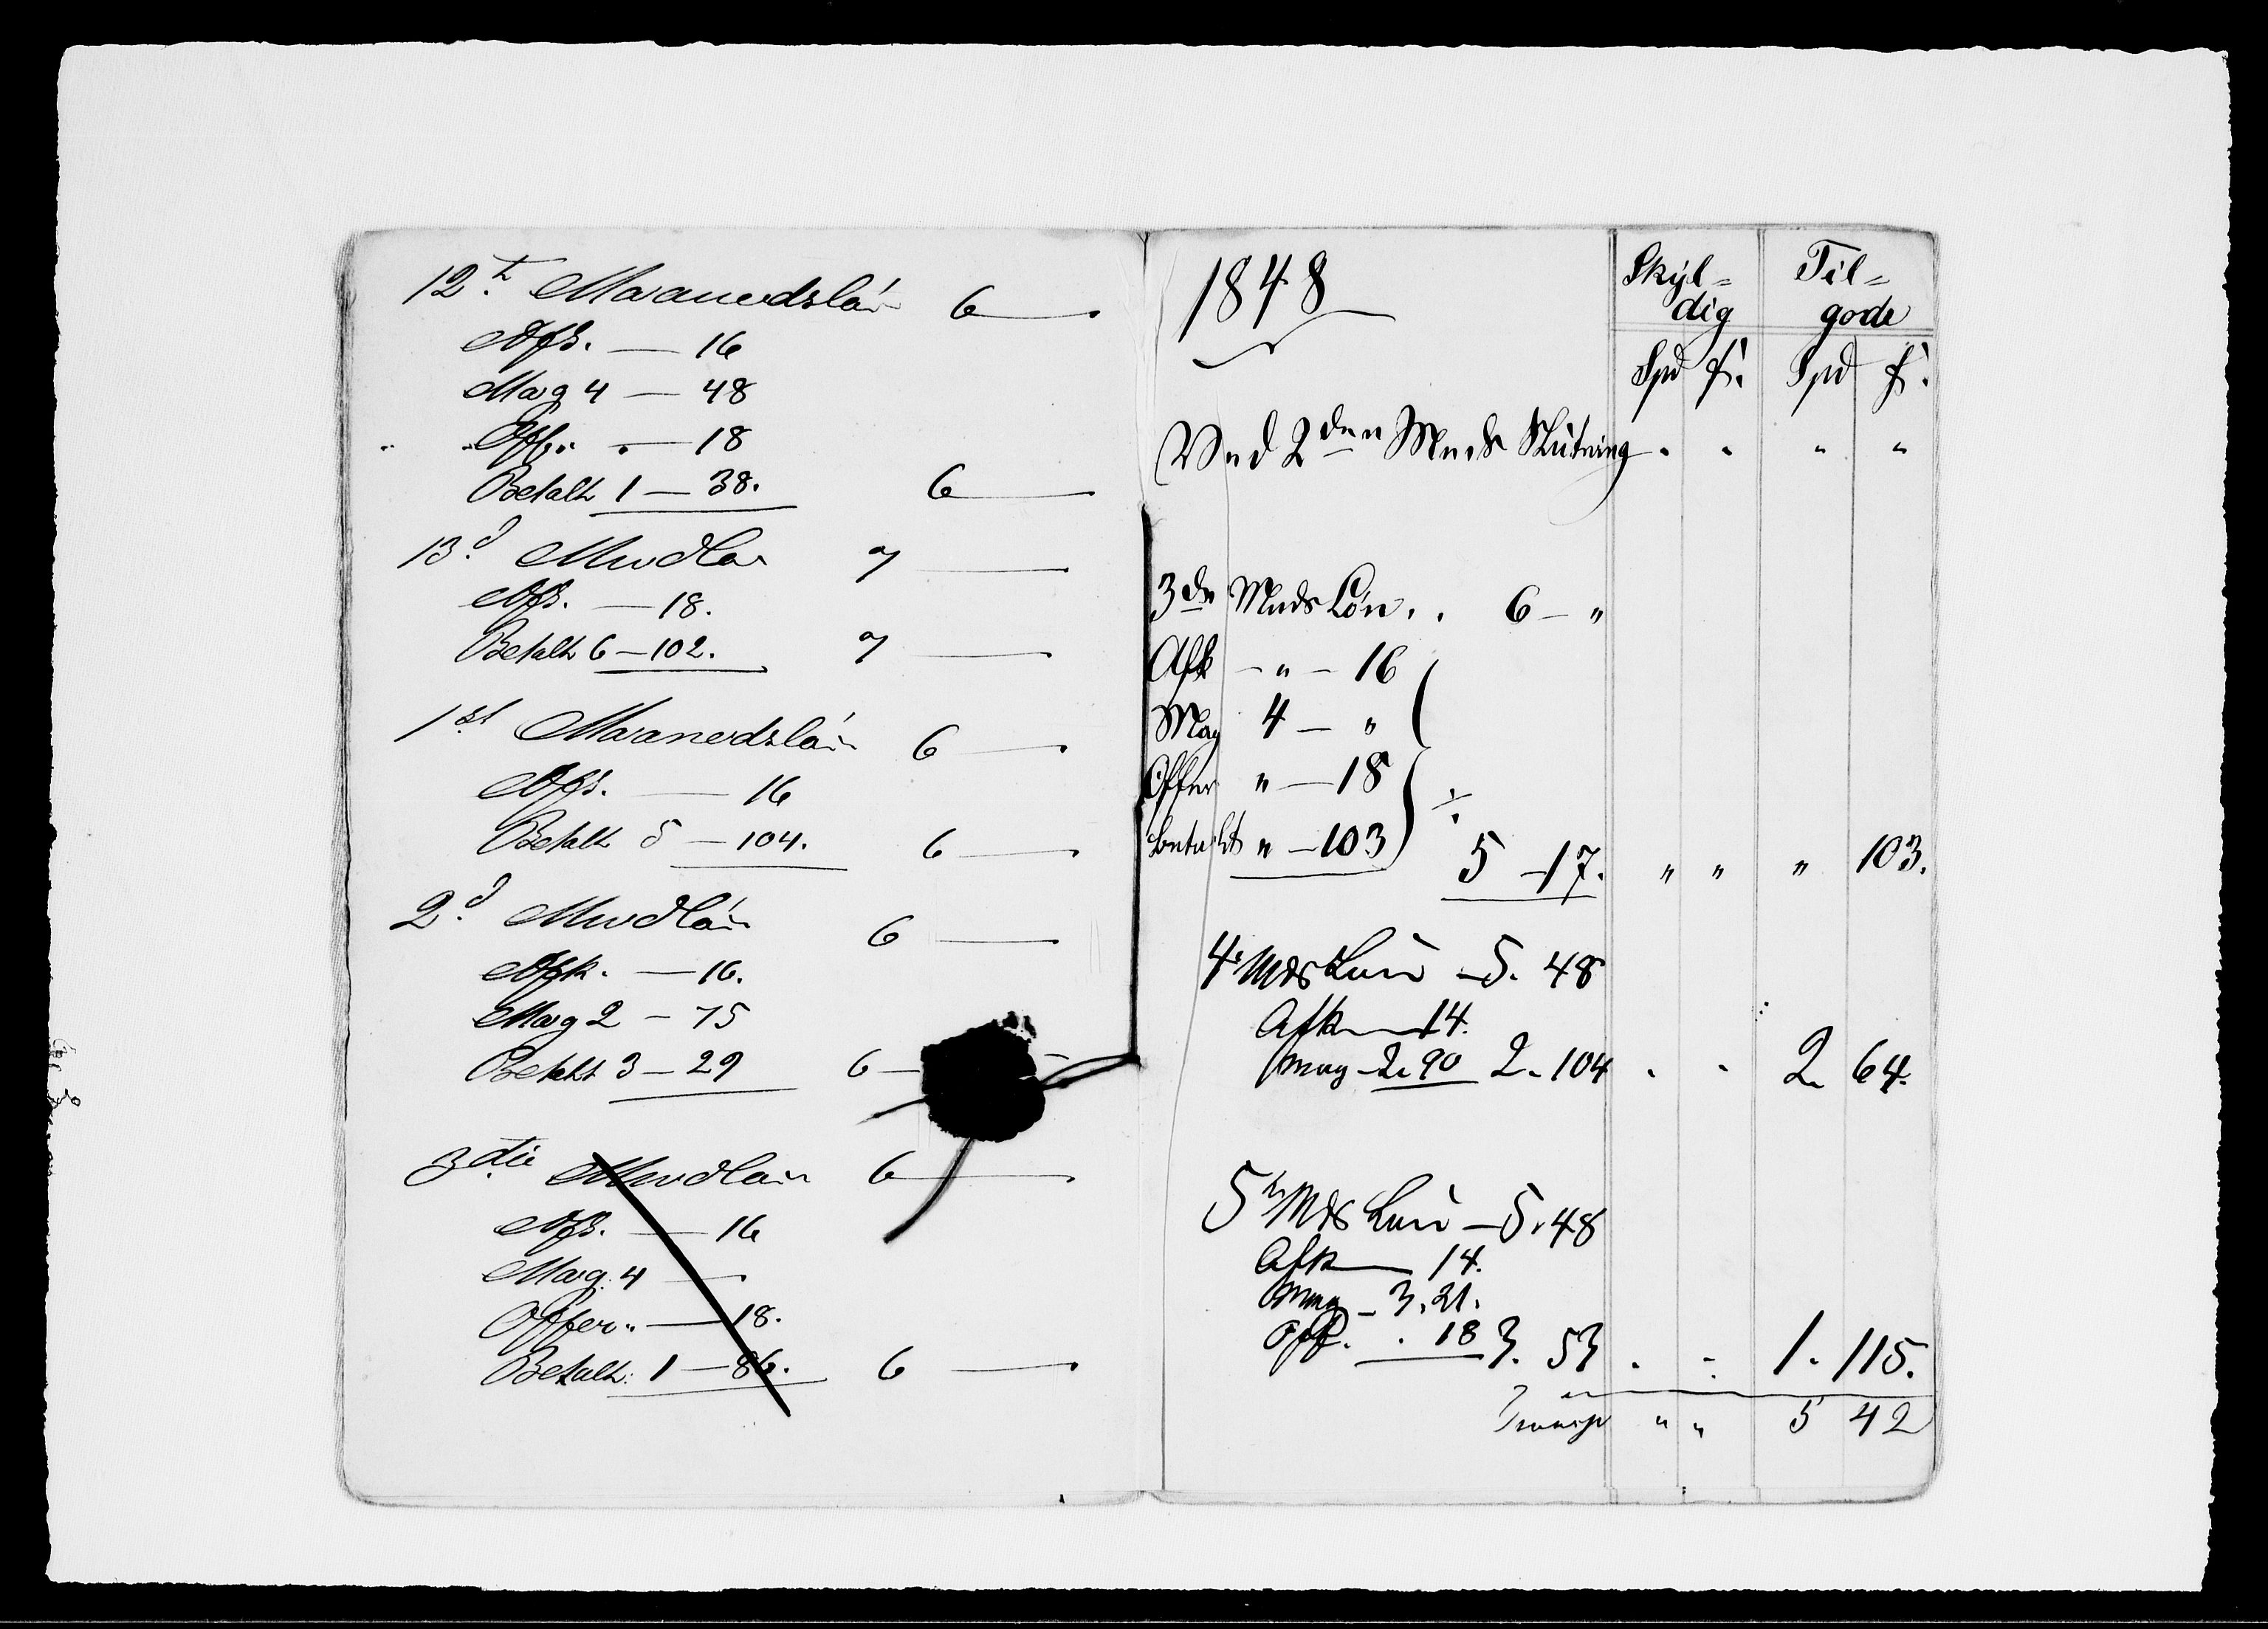 12t. Maanedslön 6 —
Afk. — 16
Mag 4 — 48
Off. " — 18
Betalt 1 — 38. 6 —
13d. Mndlön 7 —
Afk. — 18.
Betalt 6 — 102. 7 —
1st Maanedslön 6 —
Afk. — 16
Betalt 5 — 104. 6 —
2d. Mndlön 6 —
Afk. — 16.
Mag 2 — 75
Betalt 3 — 29 6 —
3die Mndlön 6 —
Afk. — 16
Mag. 4 —
Offer " — 18.
Betalt: 1 — 86. 6 —
1848
Skyl=
dig
Til=
gode
Spd ſ. Spd ſ.
Ved 2den Mnds Slutning " " " "
3de Mnds Lön . . 6 — "
Afk — " — 16
Mag 4 — "
Offer " — 18
betalt " — 103 ÷
5 — 17. " " " 103.
4. Mds Lön — 5. 48
Afk — 14.
Mag — 2. 90 2. 104 " " 2. 64.
5te Mds Lön — 5. 48
Afk — 14.
Mag — 3. 21.
Off. . 18 3. 53 " " 1. 115.
Transp " " 5 42